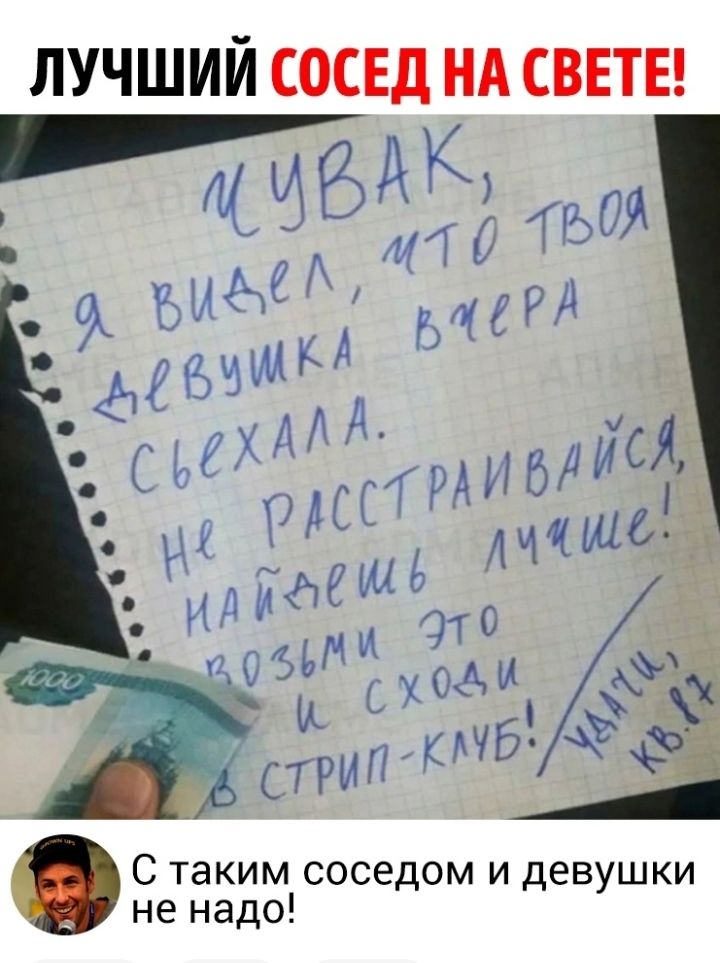 ЛУЧШИЙ СОСЕД НА СВЕТЕ!
ЧУВАК,
Я ВИДЕЛ, ЧТО ТВОЯ
ДЕВУШКА ВЧЕРА
СЬЕХАЛА.
НЕ РАССТРАИВАЙСЯ,
НАЙДЕШЬ ЛУЧШЕ!
ВОЗЬМИ ЭТО
И СХОДИ
В СТРИП-КЛУБ!
УДАЧИ,
КВ. 87
1000
С таким соседом и девушки
не надо!